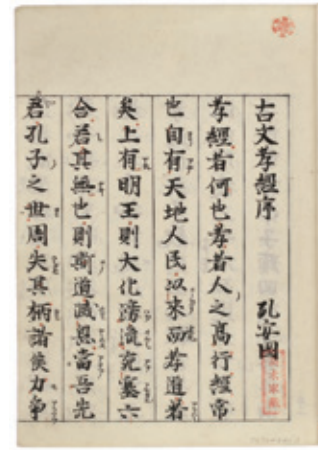 古文孝經序　孔安國
孝經者何也孝者人之高行經常
也自有天地人民以來而孝道著
矣上有明王則大化滂流充塞六
合若其無也則斯道滅息當吾先
君孔子之世周失其柄諸侯力爭